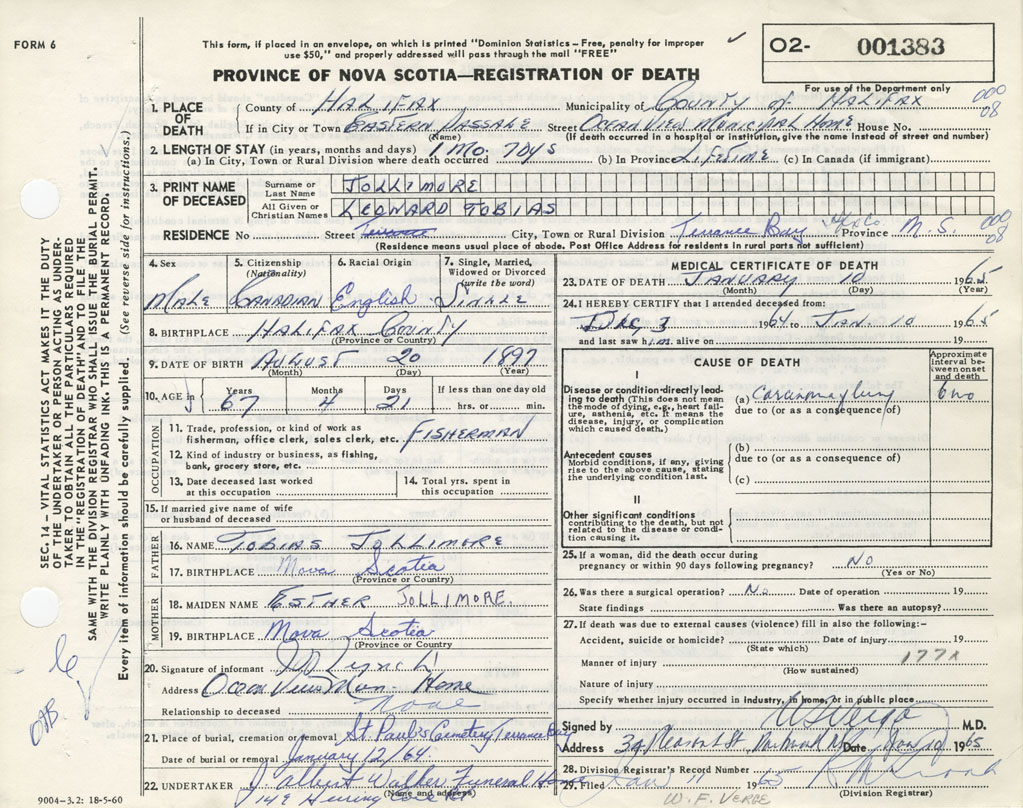 FORM 6
This form, if placed in an envelope, on which is printed "Dominion Statistics – Free, penalty for improper
use $50," and properly addressed will pass through the mail "FREE"
O2- 001383
PROVINCE OF NOVA SCOTIA—REGISTRATION OF DEATH
For use of the Department only
1. PLACE OF DEATH
County of HALIFAX Municipality of COUNTY OF HALIFAX 000 08
If in City or Town EASTERN PASSAGE Street OCEAN VIEW MUNICIPAL HOME House No.
(Name) (If death occurred in a hospital or institution, give the name instead of street and number)
2. LENGTH OF STAY (in years, months and days) 1 MO. 7 DYS
(a) In City, Town or Rural Division where death occurred (b) In Province LIFETIME (c) In Canada (if immigrant)
3. PRINT NAME OF DECEASED
Surname or Last Name JOLLIMORE
All Given or Christian Names LEONARD TOBIAS
RESIDENCE No Street Terrence City, Town or Rural Division Terrance Bay Hfx Co Province N. S. 000 08
(Residence means usual place of abode. Post Office Address for residents in rural parts not sufficient)
4. Sex MALE
5. Citizenship (Nationality) CANADIAN
6. Racial Origin English
7. Single, Married, Widowed or Divorced (write the word) SINGLE
8. BIRTHPLACE HALIFAX COUNTY
(Province or Country)
9. DATE OF BIRTH AUGUST 20 1897
(Month) (Day) (Year)
10. AGE in Years 67 Months 4 Days 21 If less than one day old hrs. or min.
OCCUPATION
11. Trade, profession, or kind of work as fisherman, office clerk, sales clerk, etc. FISHERMAN
12. Kind of industry or business, as fishing, bank, grocery store, etc.
13. Date deceased last worked at this occupation
14. Total yrs. spent in this occupation
15. If married give name of wife or husband of deceased
FATHER
16. NAME TOBIAS JOLLIMORE
17. BIRTHPLACE Nova Scotia
(Province or Country)
MOTHER
18. MAIDEN NAME ESTHER JOLLIMORE.
19. BIRTHPLACE Nova Scotia
(Province or Country)
20. Signature of informant Lynch
Address Ocean View Mun. Home
Relationship to deceased None
21. Place of burial, cremation or removal St. Paul's Cemetery Terrance Bay
Date of burial or removal January 12/64
22. UNDERTAKER J. Albert Walker Funeral Home
(Name and address)
149 Herring Cove Rd
MEDICAL CERTIFICATE OF DEATH
23. DATE OF DEATH JANUARY 10 1965
(Month) (Day) (Year)
24. I HEREBY CERTIFY that I attended deceased from:
Dec. 3 1964 to JAN. 10 1965
and last saw him alive on 19
CAUSE OF DEATH
Approximate interval between onset and death
I
Disease or condition directly leading to death (This does not mean the mode of dying, e.g., heart failure, asthenia, etc. It means the disease, injury, or complication which caused death.)
(a) Carcinoma, lung 6 mo
due to (or as a consequence of)
Antecedent causes
Morbid conditions, if any, giving rise to the above cause, stating the underlying condition last.
(b)
due to (or as a consequence of)
(c)
II
Other significant conditions
contributing to the death, but not related to the disease or condition causing it.
25. If a woman, did the death occur during pregnancy or within 90 days following pregnancy? NO
(Yes or No)
26. Was there a surgical operation? No Date of operation 19
State findings Was there an autopsy?
27. If death was due to external causes (violence) fill in also the following:-
Accident, suicide or homicide? Date of injury 19
(State which)
Manner of injury
(How sustained)
Nature of injury
Specify whether injury occurred in Industry, in home, or in public place
Signed by W F Verge M.D.
Address 34 Pleasant St Dartmouth NS Date Jan 10 1965
28. Division Registrar's Record Number
29. Filed Jan 11 1965
(Division Registrar)
W. F. VERGE
SEC. 14 – VITAL STATISTICS ACT MAKES IT THE DUTY
OF THE UNDERTAKER OR PERSON ACTING AS UNDER-
TAKER TO OBTAIN ALL THE PARTICULARS REQUIRED
IN THE "REGISTRATION OF DEATH" AND TO FILE THE
SAME WITH THE DIVISION REGISTRAR WHO SHALL ISSUE THE BURIAL PERMIT.
WRITE PLAINLY WITH UNFADING INK. THIS IS A PERMANENT RECORD.
Every item of information should be carefully supplied. (See reverse side for instructions.)
9004–3.2: 18-5-60